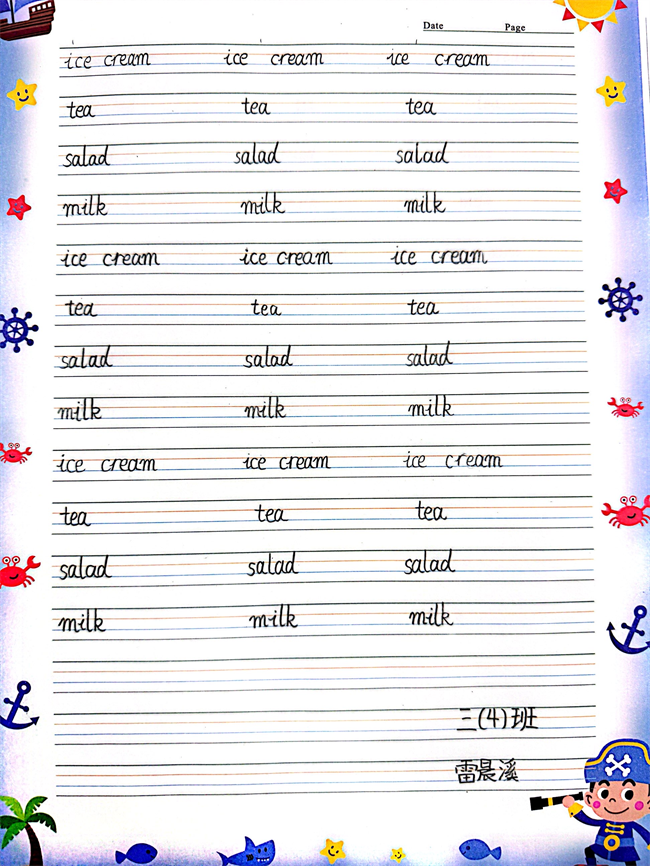 Date Page
ice cream ice cream ice cream
tea tea tea
salad salad salad
milk milk milk
ice cream ice cream ice cream
tea tea tea
salad salad salad
milk milk milk
ice cream ice cream ice cream
tea tea tea
salad salad salad
milk milk milk
三(4)班
雷晨溪